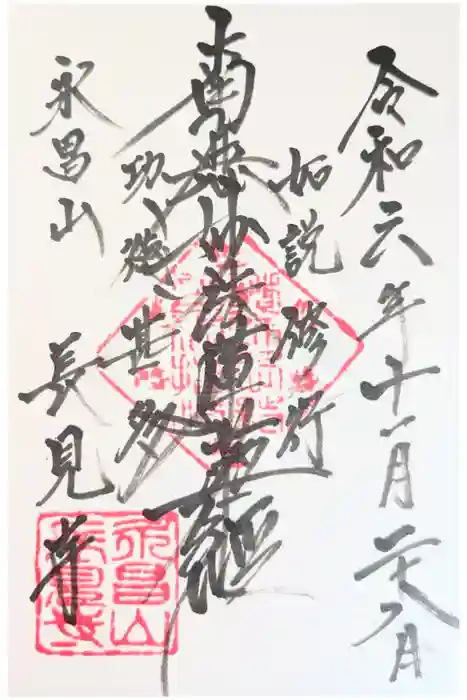 令和六年十一月二十八日
如説修行
南無妙法蓮華経
功徳甚多
永昌山
長見寺
永昌山
長見寺